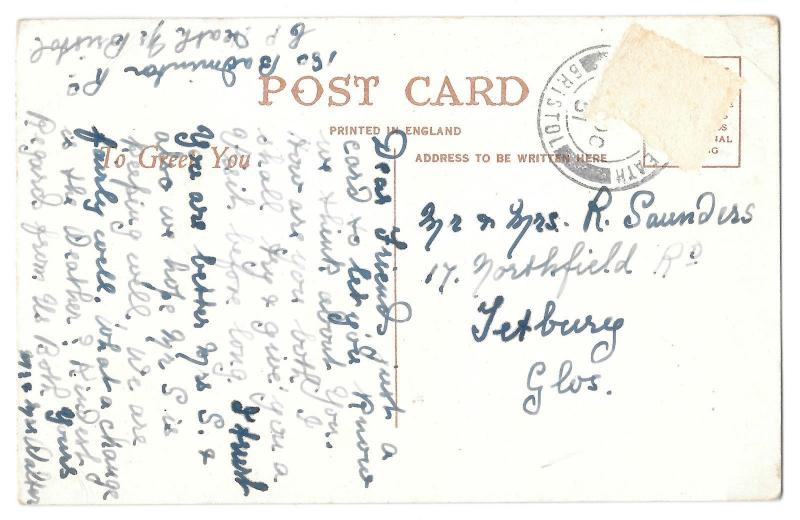 150 Badminton Rd
C. P. Heath Nr Bristol
POST CARD
PRINTED IN ENGLAND
To Greet You
ADDRESS TO BE WRITTEN HERE
BRISTOL
EATH
Mr & Mrs. R. Saunders
17. Northfield Rd
Tetbury
Glos.
Dear Friend, Just a
card to let you know
we think about you.
How are you both I
shall try & give you a
visit before long. I trust
you are better Mrs S. &
also we hope Mr S is
keeping well. We are
fairly well. What a change
in the Weather? Kindest
Regards from Us Both Yours
Mr & Mrs Walter